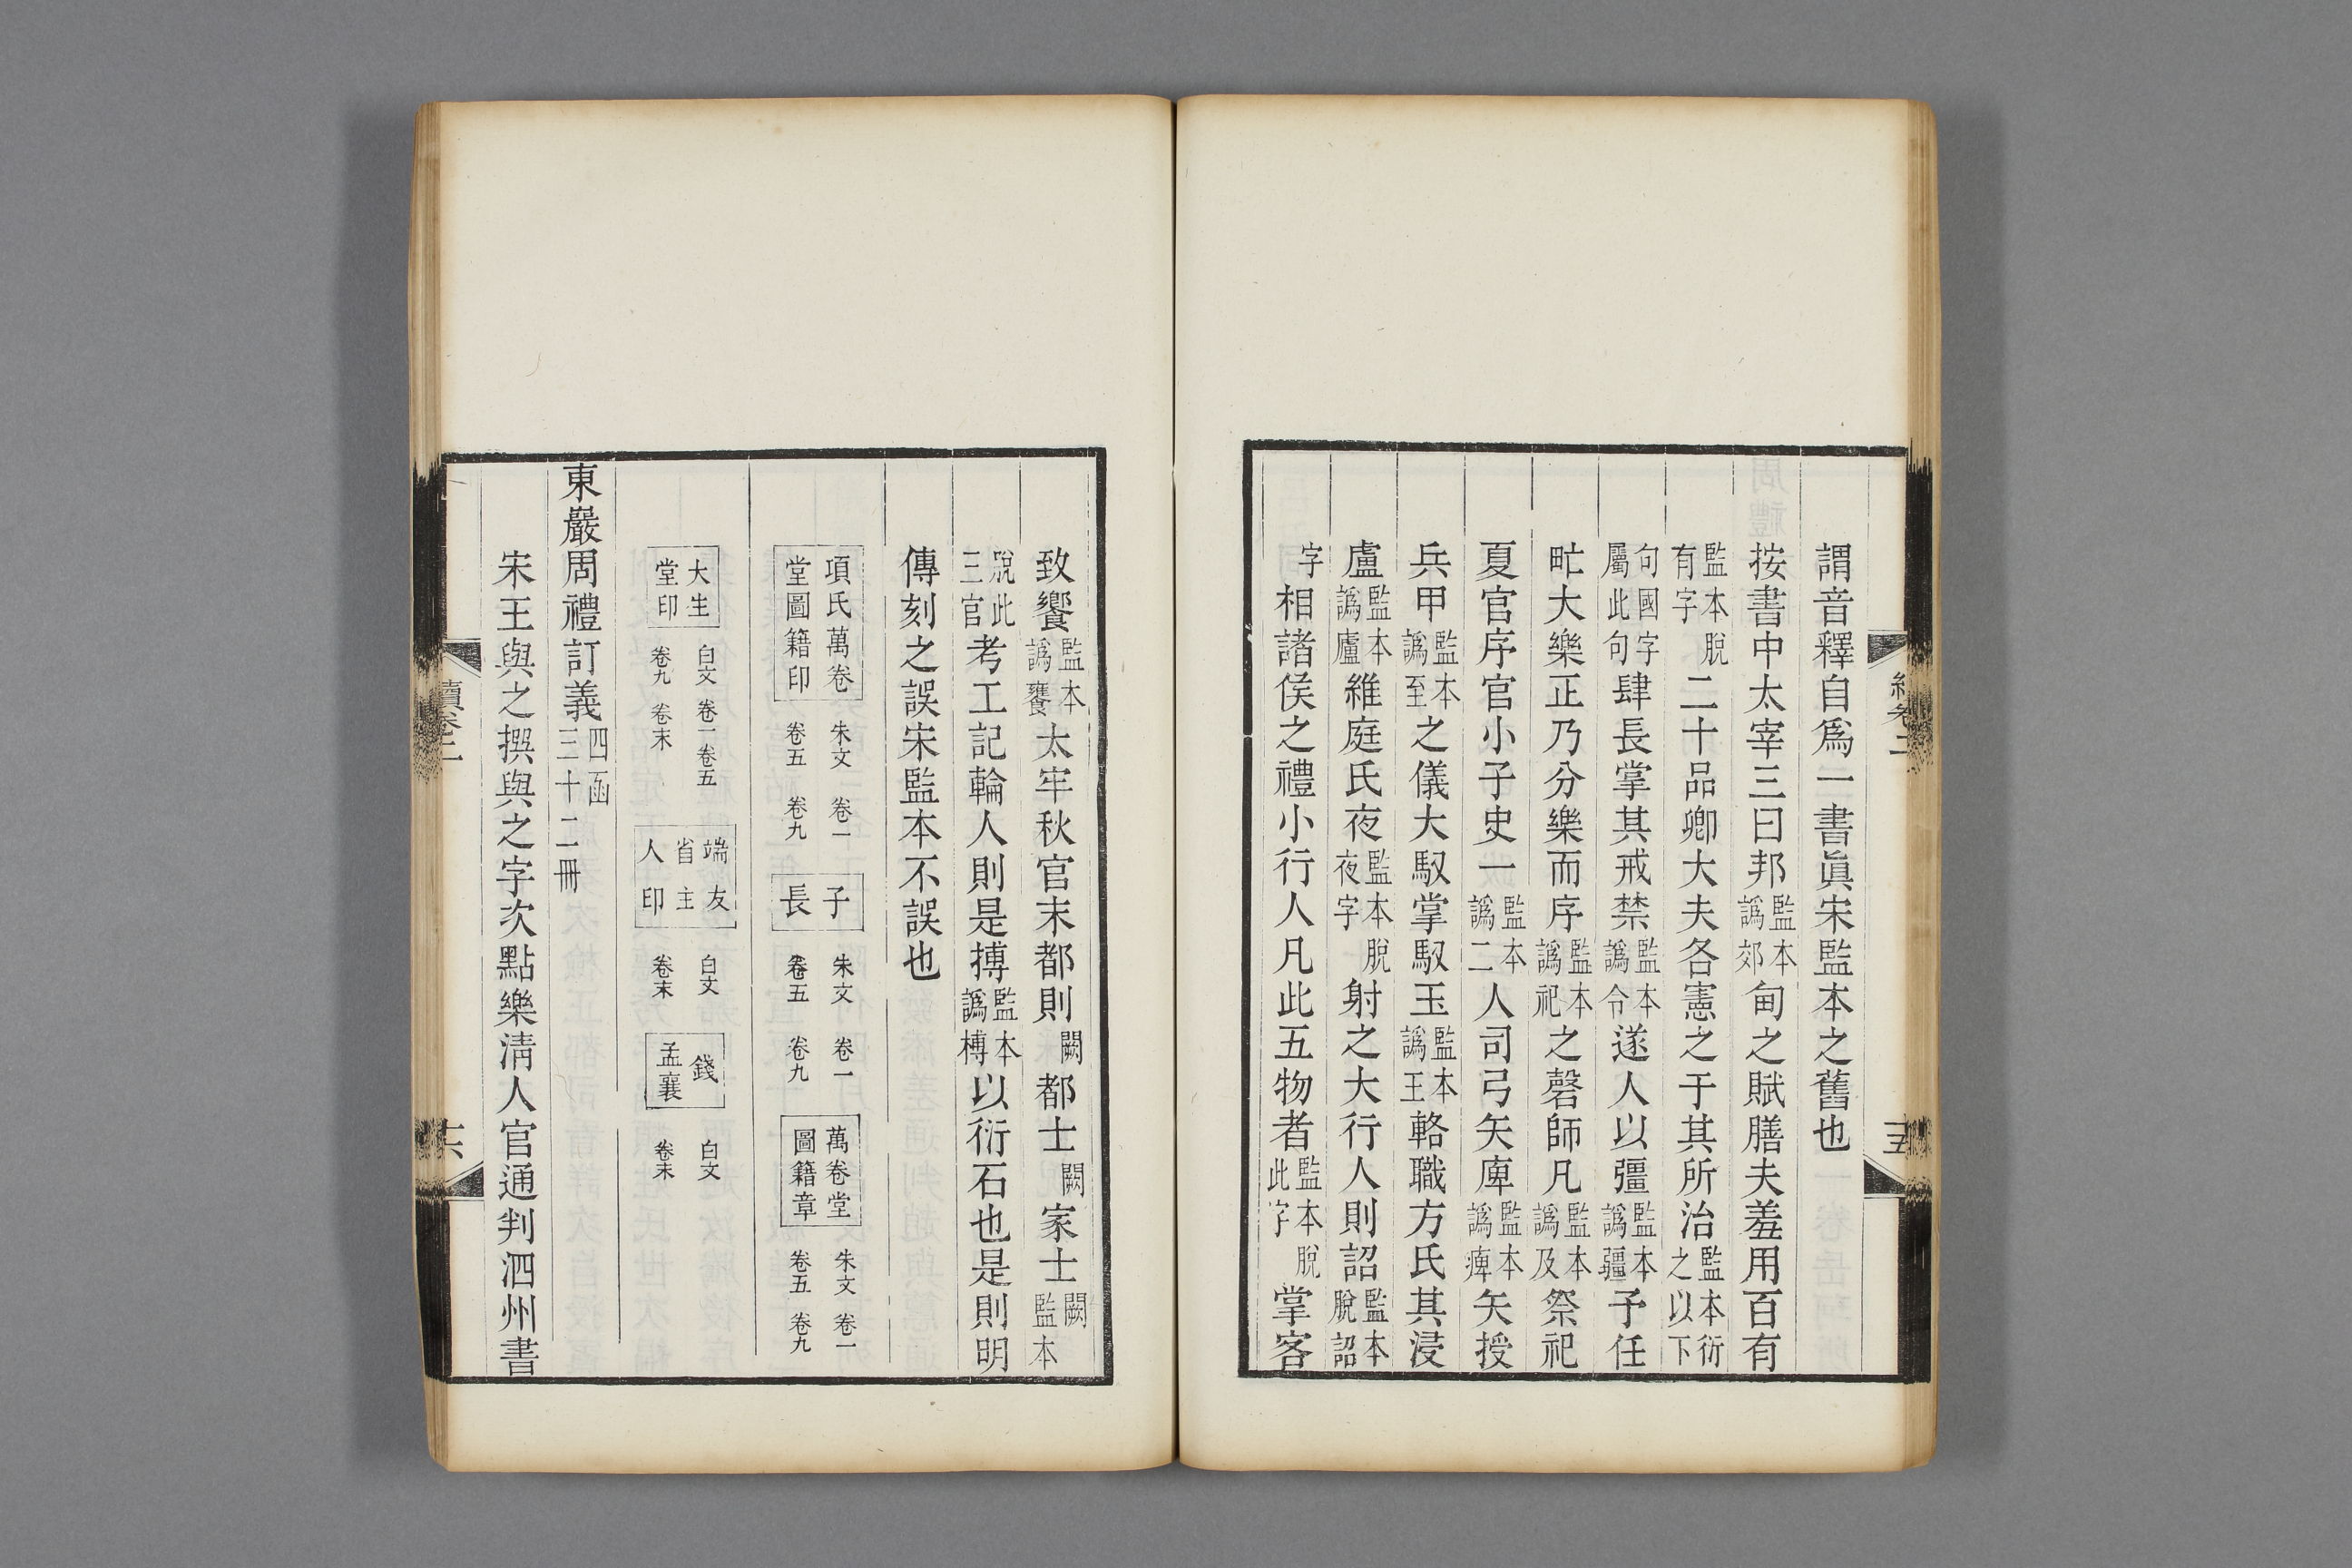 謂音釋自爲一書眞宋監本之舊也
按書中太宰三曰邦監本譌郊甸之賦膳夫羞用百有
監本脫有字二十品卿大夫各憲之于其所治監本衍之以下
句國字屬此句肆長掌其戒禁監本譌令遂人以彊監本譌疆予任
甿大樂正乃分樂而序監本譌祀之磬師凡監本譌及祭祀
夏官序官小子史一監本譌二人司弓矢庳監本譌痺矢授
兵甲監本譌至之儀大馭掌馭玉監本譌王輅職方氏其浸
盧監本譌廬維庭氏夜監本脫夜字射之大行人則詔監本脫詔
字相諸侯之禮小行人凡此五物者監本脫此字掌客
致饗監本譌饔太牢秋官末都則闕都士闕家士闕監本
脫此三官考工記輪人則是摶監本譌榑以衍石也是則明
傳刻之誤宋監本不誤也
項氏萬卷堂圖籍印 朱文 卷一 卷五 卷九 子長 朱文 卷一 卷五 卷九 萬卷堂圖籍章 朱文 卷一 卷五 卷九
大生堂印 白文 卷一 卷五 卷九 卷末 端友省主人印 白文 卷末 錢孟襄 白文 卷末
東巖周禮訂義四函三十二冊
宋王與之撰與之字次點樂淸人官通判泗州書
續卷二